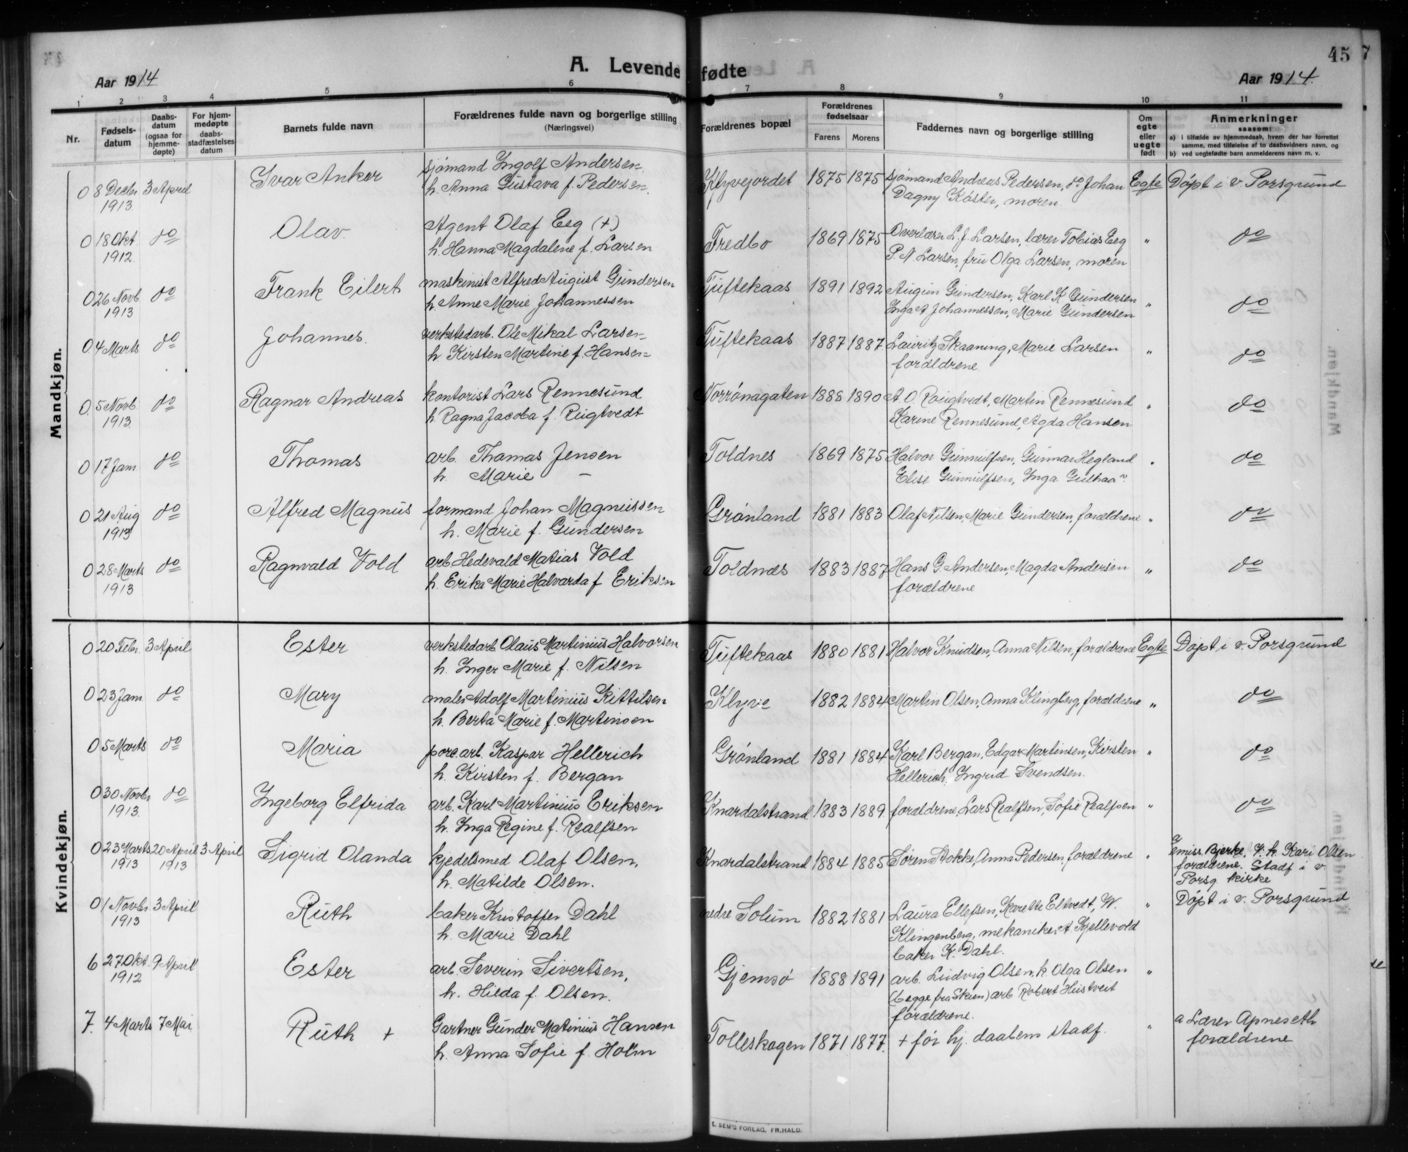 45 7
A. Levendefødte
Aar 1914
Aar 1914.
1 2 3 4 5 6 7 8 9 10 11
Nr.
Fødsels-datum
Daabs-datum (ogsaa for hjemme-døpte)
For hjem-medøpte daabs-stadfæstelses datum
Barnets fulde navn
Forældrenes fulde navn og borgerlige stilling
(Næringsvei)
Forældrenes bopæl
Forældrenes fødselsaar
Farens Morens
Faddernes navn og borgerlig stilling
Om egte eller uegte født
Anmerkninger
saasom:
a) i tilfælde av hjemmedaab, hvem der har forrettet samme, med tilføielse af to daabsvidners navn, og
b) ved uegtefødte barn anmelderens navn m. v.
Mandkjøn.
0 8 Decbr 3 April Ivar Anker sjømand Ingolf Andersen Klyvejordet 1875 1875 sjømand Andreas Pedersen, do Johan Egte Døpt i v Porsgrund
1913 h. Anna Gustava f. Pedersen. Dagny Køster, moren
0 18 Okt do Olav Agent Olaf Esg (+) Fredbo 1869 1875 Overlærer L. J. Larsen, lærer Tobias Esg " do
1912 h. Hanna Magdalene f. Larsen P. N Larsen, fru Olga Larsen, moren
0 26 Novb do Frank Eilert maskinist Alfred August Gundersen Tuftekaas 1891 1892 August Gundersen, Karl K Gundersen " do
1913 h. Anne Marie Johannessen Inga A Johannessen, Marie Gundersen
0 4 Marts do Johannes. verkstedarb. Ole Mikal Larsen Tuftekaas 1887 1887 Lauritz Skaaning, Marie Larsen " do
h Kirsten Martine f. Hansen forældrene
0 5 Novb do Ragnar Andreas kontorist Lars Rennesund Norrønagaten 1888 1890 A O Rugtvedt, Martin Rennesund " do
1913 h. Ragna Jacoba f. Rugtvedt Karine Rennesund, Agda Hansen
0 17 Jan do Thomas arb. Thomas Jensen Toldnes 1869 1875 Halvor Gunnulfsen, Gunnar Hegland " do
h. Marie — Elise Gunnulfsen, Inga
0 21 Aug do Alfred Magnus formand Johan Magnussen Grønland 1881 1883 Olaf Nilsen, Marie Gundersen, forældrene " do
1913 h. Marie f. Gundersen
0 28 Marts do Ragnvald Vold arb Hedevald Matias Vold Toldnæs 1883 1887 Hans G Andersen, Magda Andersen " do
1913 h. Erika Marie Halvarda f Eriksen forældrene
Kvindekjøn.
0 20 Febr. 3 April Ester verkstedarb Olaus Martinius Halvorsen Tuftekaas 1880 1881 Halvor Knudsen, Anna Nilsen, forældrene Egte Døpt i v Porsgrund
h. Inger Marie f. Nilsen
0 23 Jan do Mary maler Adolf Martinius Kittilsen Klyve 1882 1884 Martin Olsen, Anna Klingberg, forældrene " do
h. Berta Marie f. Martinsen
0 5 Marts do Maria porc. arb. Kaspar Hellerich Grønland 1881 1884 Karl Bergan, Edgar Martinsen, Kirsten " do
h Kirsten f. Bergan Hellerich, Ingrid Svendsen.
0 30 Novb do Ingeborg Elfrida arb. Karl Martinius Eriksen Knardalstrand 1883 1889 forældrene Lars Realfsen, Sofie Realfsen " do
1913. h. Inga Regine f. Realfsen
0 23 Marts 20 April 3 April Sigrid Olanda kjedelsmed Olaf Olsen, Knardalstrand 1884 1885 Søren Stokke, Anna Pedersen, forældrene " emiss Bjerke. Kari Olsen
1913 1913 h. Matilde Olsen. forældrene. Stadf i v
Porsg kirke
0 1 Novb 3 April Ruth baker Kristoffer Dahl nedre Solum 1882 1881 Laura Ellefsen, Elvedt, W. " Døpt i v. Porsgrund
1913 h. Marie Dahl Klingenberg, mekaniker A. Kjellevold
baker K. Dahl.
6 27 Okt 9 April Ester arb Severin Sivertsen, Gjemsø 1888 1891 arb. Ludvig Olsen, k. Olga Olsen "
1912 h. Hilda f. Olsen. (begge fra Skien) arb Robert Hustveit
forældrene.
7. 4 Marts 7 Mai Ruth + Gartner Gunder Matinius Hansen Tolleskogen 1871 1877. + før hj. daabens stadf. " a Lærer Apneseth
h. Anna Sofie f. Holm forældrene
E. SEM'S FORLAG, FR.HALD.